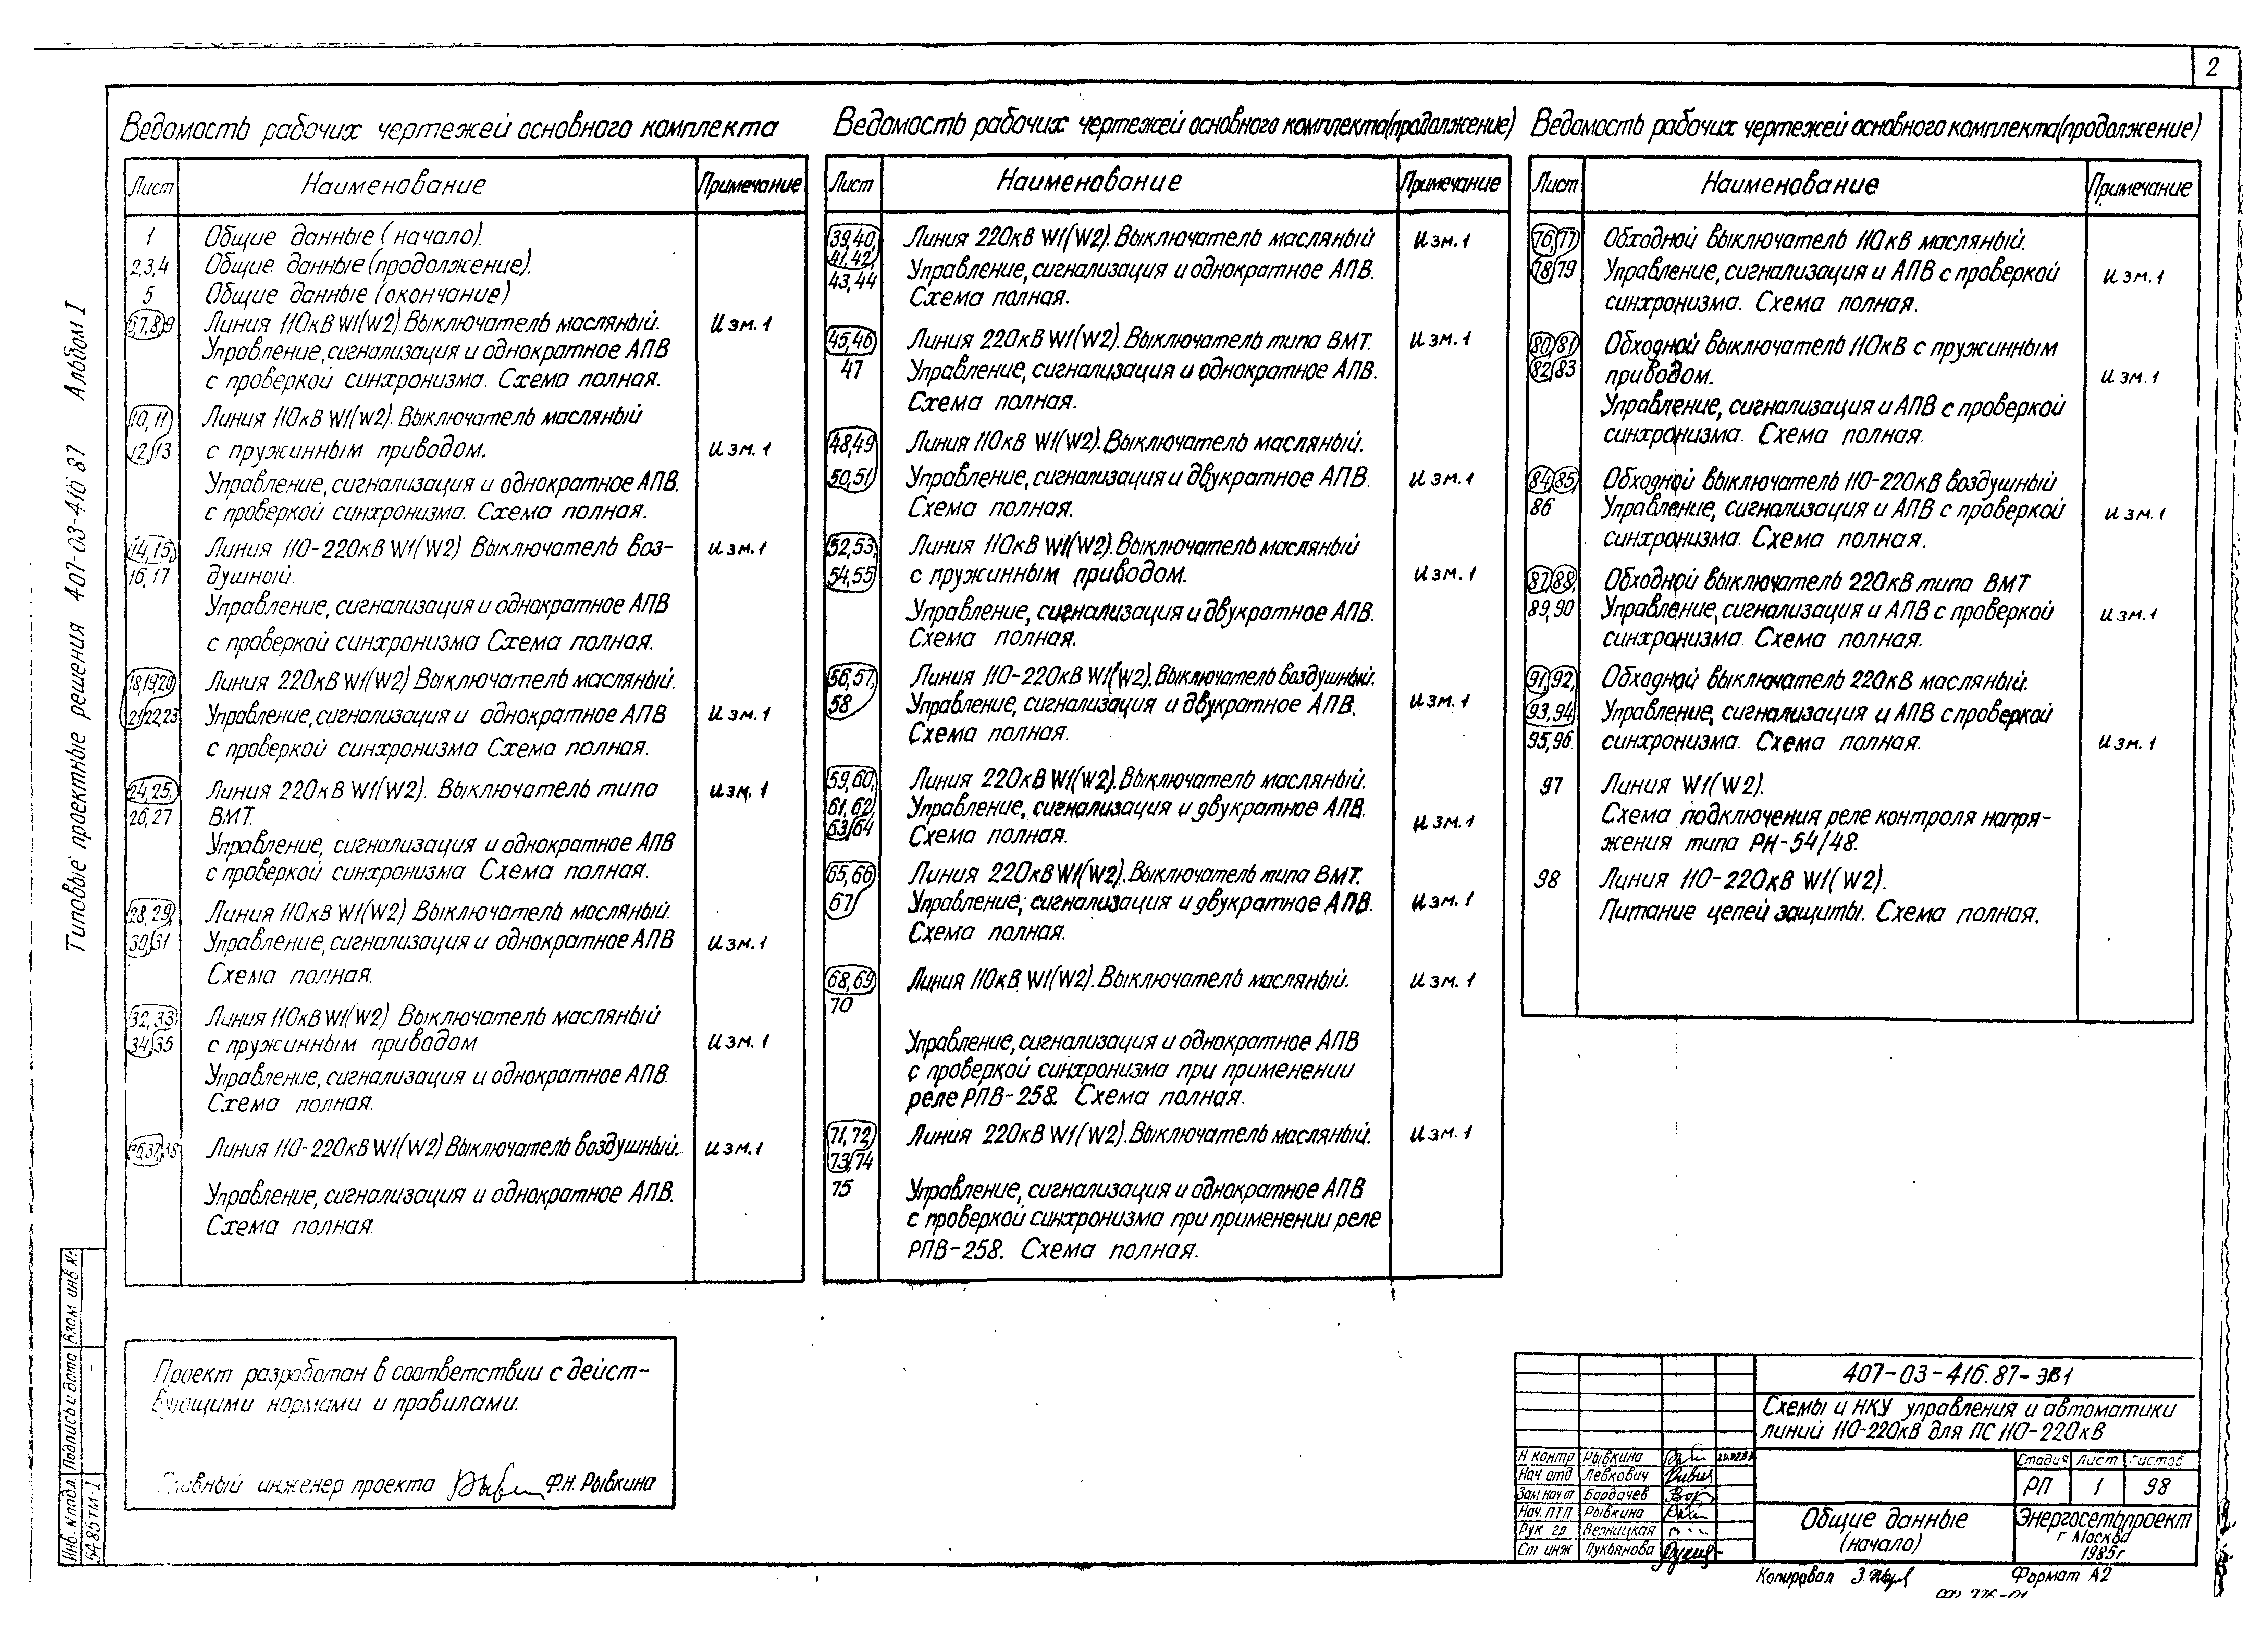 2
Ведомость рабочих чертежей основного комплекта
Лист Наименование Примечание
1 Общие данные (начало).
2,3,4 Общие данные (продолжение).
5 Общие данные (окончание)
6,7,8,9 Линия 110кВ W1(W2). Выключатель масляный. Изм.1
Управление, сигнализация и однократное АПВ
с проверкой синхронизма. Схема полная.
10, 11 Линия 110кВ W1(W2). Выключатель масляный
12,13 с пружинным приводом. Изм.1
Управление, сигнализация и однократное АПВ.
с проверкой синхронизма. Схема полная.
14,15, Линия 110-220кВ W1(W2) Выключатель воз- Изм.1
16,17 душный.
Управление, сигнализация и однократное АПВ
с проверкой синхронизма Схема полная.
18,19,20 Линия 220кВ W1(W2) Выключатель масляный.
21,22,23 Управление, сигнализация и однократное АПВ Изм.1
с проверкой синхронизма Схема полная.
24,25, Линия 220кВ W1(W2). Выключатель типа Изм.1
26,27 ВМТ.
Управление, сигнализация и однократное АПВ
с проверкой синхронизма Схема полная.
28,29, Линия 110кВ W1(W2) Выключатель масляный.
30,31 Управление, сигнализация и однократное АПВ Изм.1
Схема полная.
32,33 Линия 110кВ W1(W2) Выключатель масляный
34,35 с пружинным приводом Изм.1
Управление, сигнализация и однократное АПВ.
Схема полная.
36,37,38 Линия 110-220кВ W1(W2) Выключатель воздушный. Изм.1
Управление, сигнализация и однократное АПВ.
Схема полная.
Ведомость рабочих чертежей основного комплекта (продолжение)
Лист Наименование Примечание
39,40, Линия 220кВ W1(W2). Выключатель масляный Изм.1
41,42, Управление, сигнализация и однократное АПВ.
43,44 Схема полная.
45,46 Линия 220кВ W1(W2). Выключатель типа ВМТ. Изм.1
47 Управление, сигнализация и однократное АПВ.
Схема полная.
48,49 Линия 110кВ W1(W2). Выключатель масляный.
50,51 Управление, сигнализация и двукратное АПВ. Изм.1
Схема полная.
52,53 Линия 110кВ W1(W2). Выключатель масляный
54,55 с пружинным приводом. Изм.1
Управление, сигнализация и двукратное АПВ.
Схема полная.
56,57, Линия 110-220кВ W1(W2). Выключатель воздушный.
58 Управление, сигнализация и двукратное АПВ. Изм.1
Схема полная.
59,60, Линия 220кВ W1(W2). Выключатель масляный.
61,62, Управление, сигнализация и двукратное АПВ.
63,64 Схема полная. Изм.1
65,66 Линия 220кВ W1(W2). Выключатель типа ВМТ.
67 Управление, сигнализация и двукратное АПВ. Изм.1
Схема полная.
68,69 Линия 110кВ W1(W2). Выключатель масляный. Изм.1
70
Управление, сигнализация и однократное АПВ
с проверкой синхронизма при применении
реле РПВ-258. Схема полная.
71,72 Линия 220кВ W1(W2). Выключатель масляный. Изм.1
73,74
75 Управление, сигнализация и однократное АПВ
с проверкой синхронизма при применении реле
РПВ-258. Схема полная.
Ведомость рабочих чертежей основного комплекта (продолжение)
Лист Наименование Примечание
76,77 Обходной выключатель 110кВ масляный.
78,79 Управление, сигнализация и АПВ с проверкой Изм.1
синхронизма. Схема полная.
80,81 Обходной выключатель 110кВ с пружинным
82,83 приводом. Изм.1
Управление, сигнализация и АПВ с проверкой
синхронизма. Схема полная.
84,85, Обходной выключатель 110-220кВ воздушный
86 Управление, сигнализация и АПВ с проверкой Изм.1
синхронизма. Схема полная.
87,88, Обходной выключатель 220кВ типа ВМТ
89,90 Управление, сигнализация и АПВ с проверкой Изм.1
синхронизма. Схема полная.
91,92, Обходной выключатель 220кВ масляный.
93,94 Управление, сигнализация и АПВ с проверкой
95,96. синхронизма. Схема полная. Изм.1
97 Линия W1(W2).
Схема подключения реле контроля напря-
жения типа РН-54/48.
98 Линия 110-220кВ W1(W2).
Питание цепей защиты. Схема полная.
Типовые проектные решения 407-03-416 87 Альбом I
Инв. № подл. Подпись и дата Взам инв №
5485тм-I
Проект разработан в соответствии с дейст-
вующими нормами и правилами.
Главный инженер проекта Ф.Н. Рывкина
407-03-416.87-ЭВ1
Схемы и НКУ управления и автоматики
линий 110-220кВ для ПС 110-220кВ
Н контр Рывкина
Нач отд Левкович
Зам нач от Бордачев
Нач. ПТП Рывкина
Рук гр Верницкая
Ст инж Лукьянова
Стадия Лист Листов
РП 1 98
Общие данные
(начало)
Энергосетьпроект
г Москва
1985г
Копировал
Формат А2